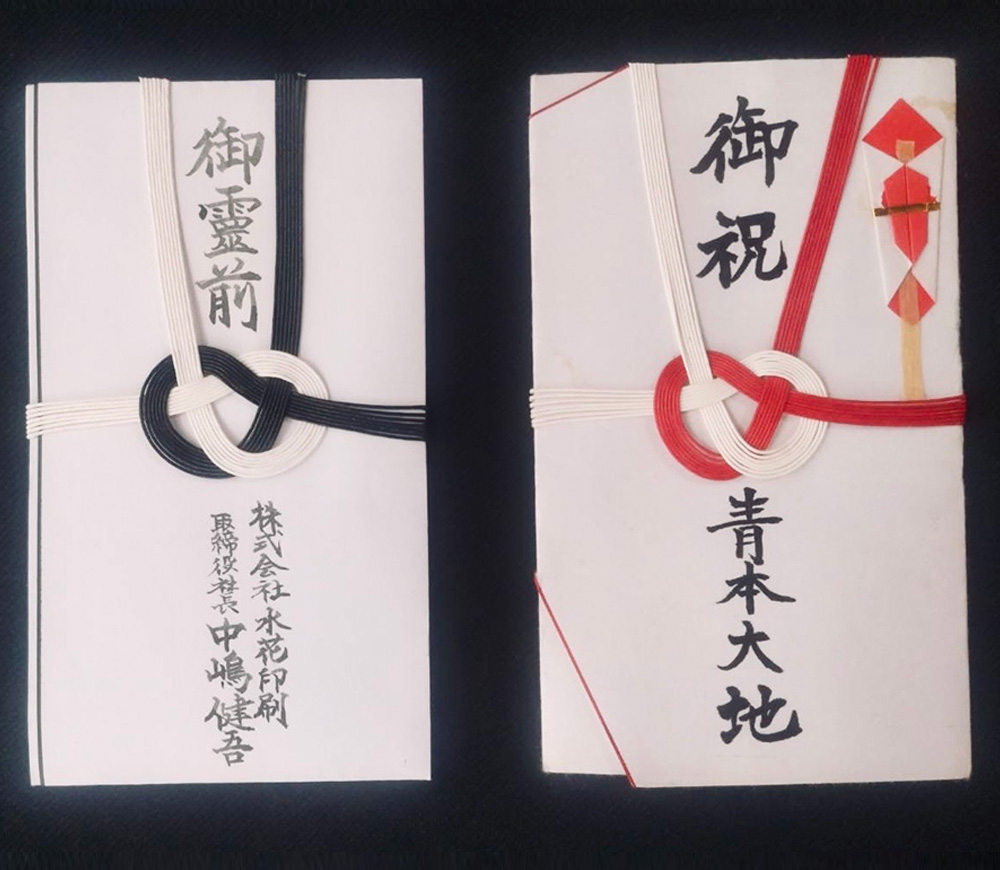 御靈前
株式会社水花印刷
取締役社長 中嶋健吾
御祝
青本大地